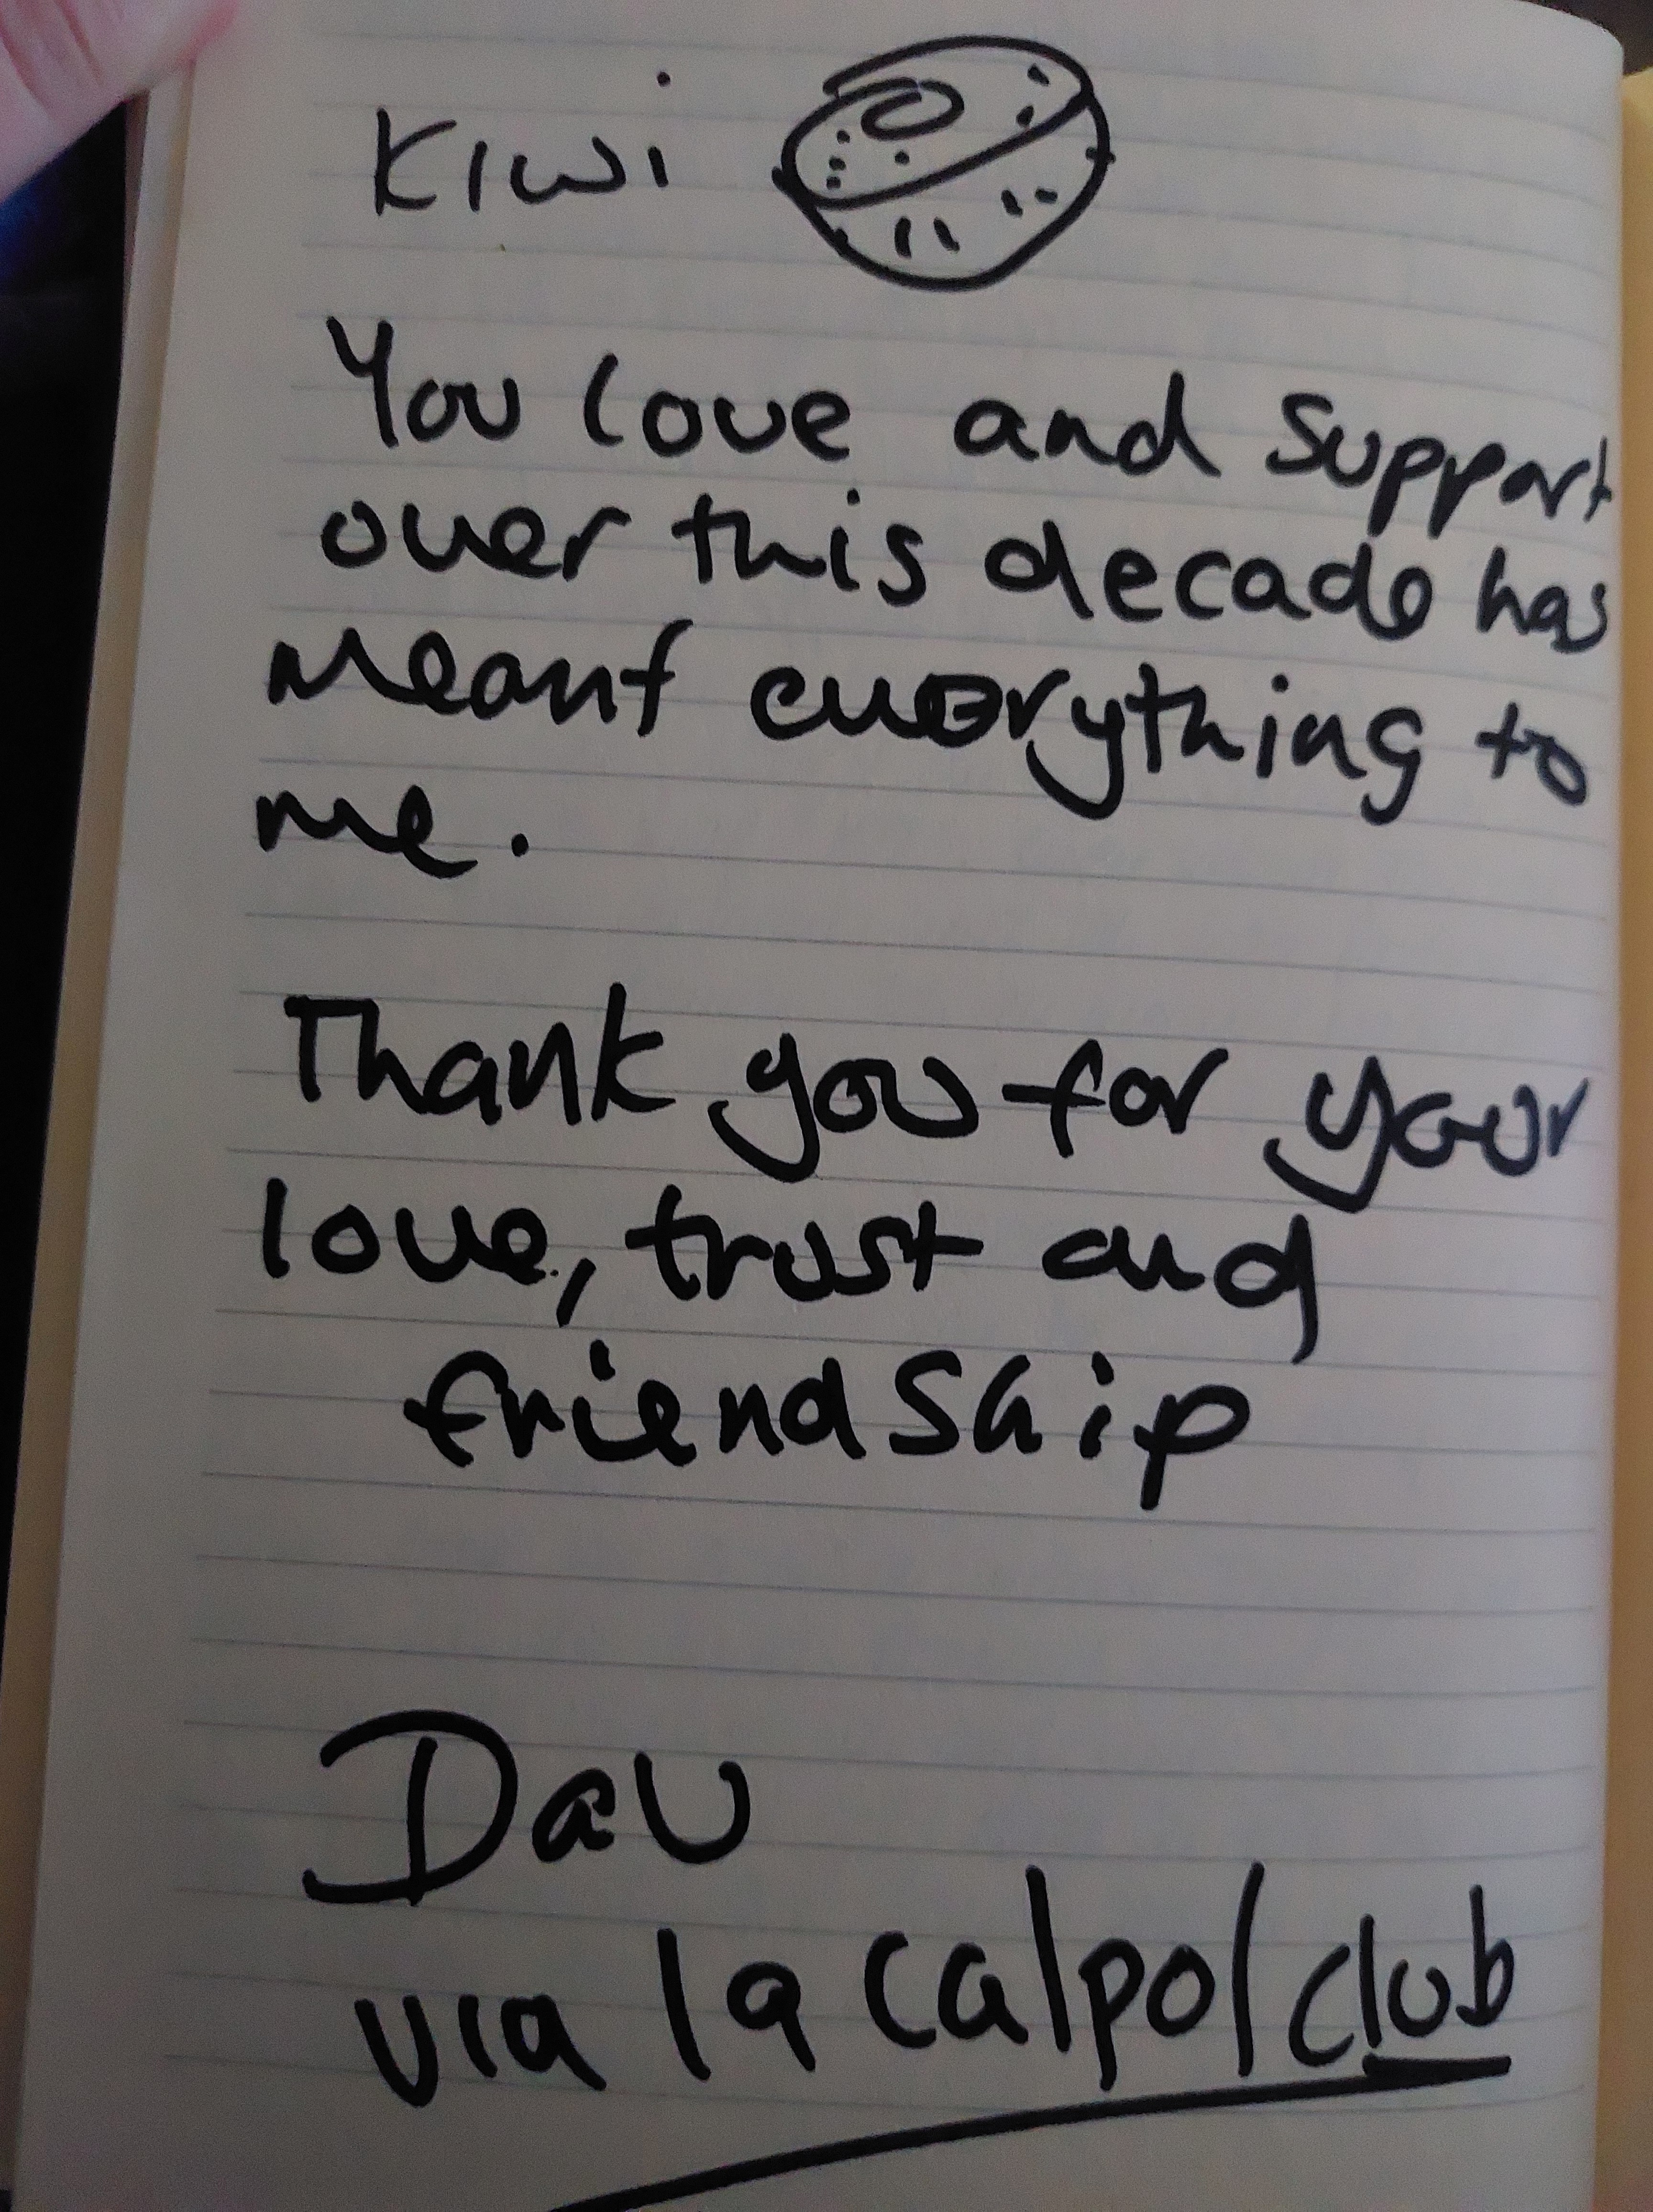 Kiwi
You love and support
over this decade has
meant everything to
me.
Thank you for your
love, trust and
friendship
Dav
via la calpol club